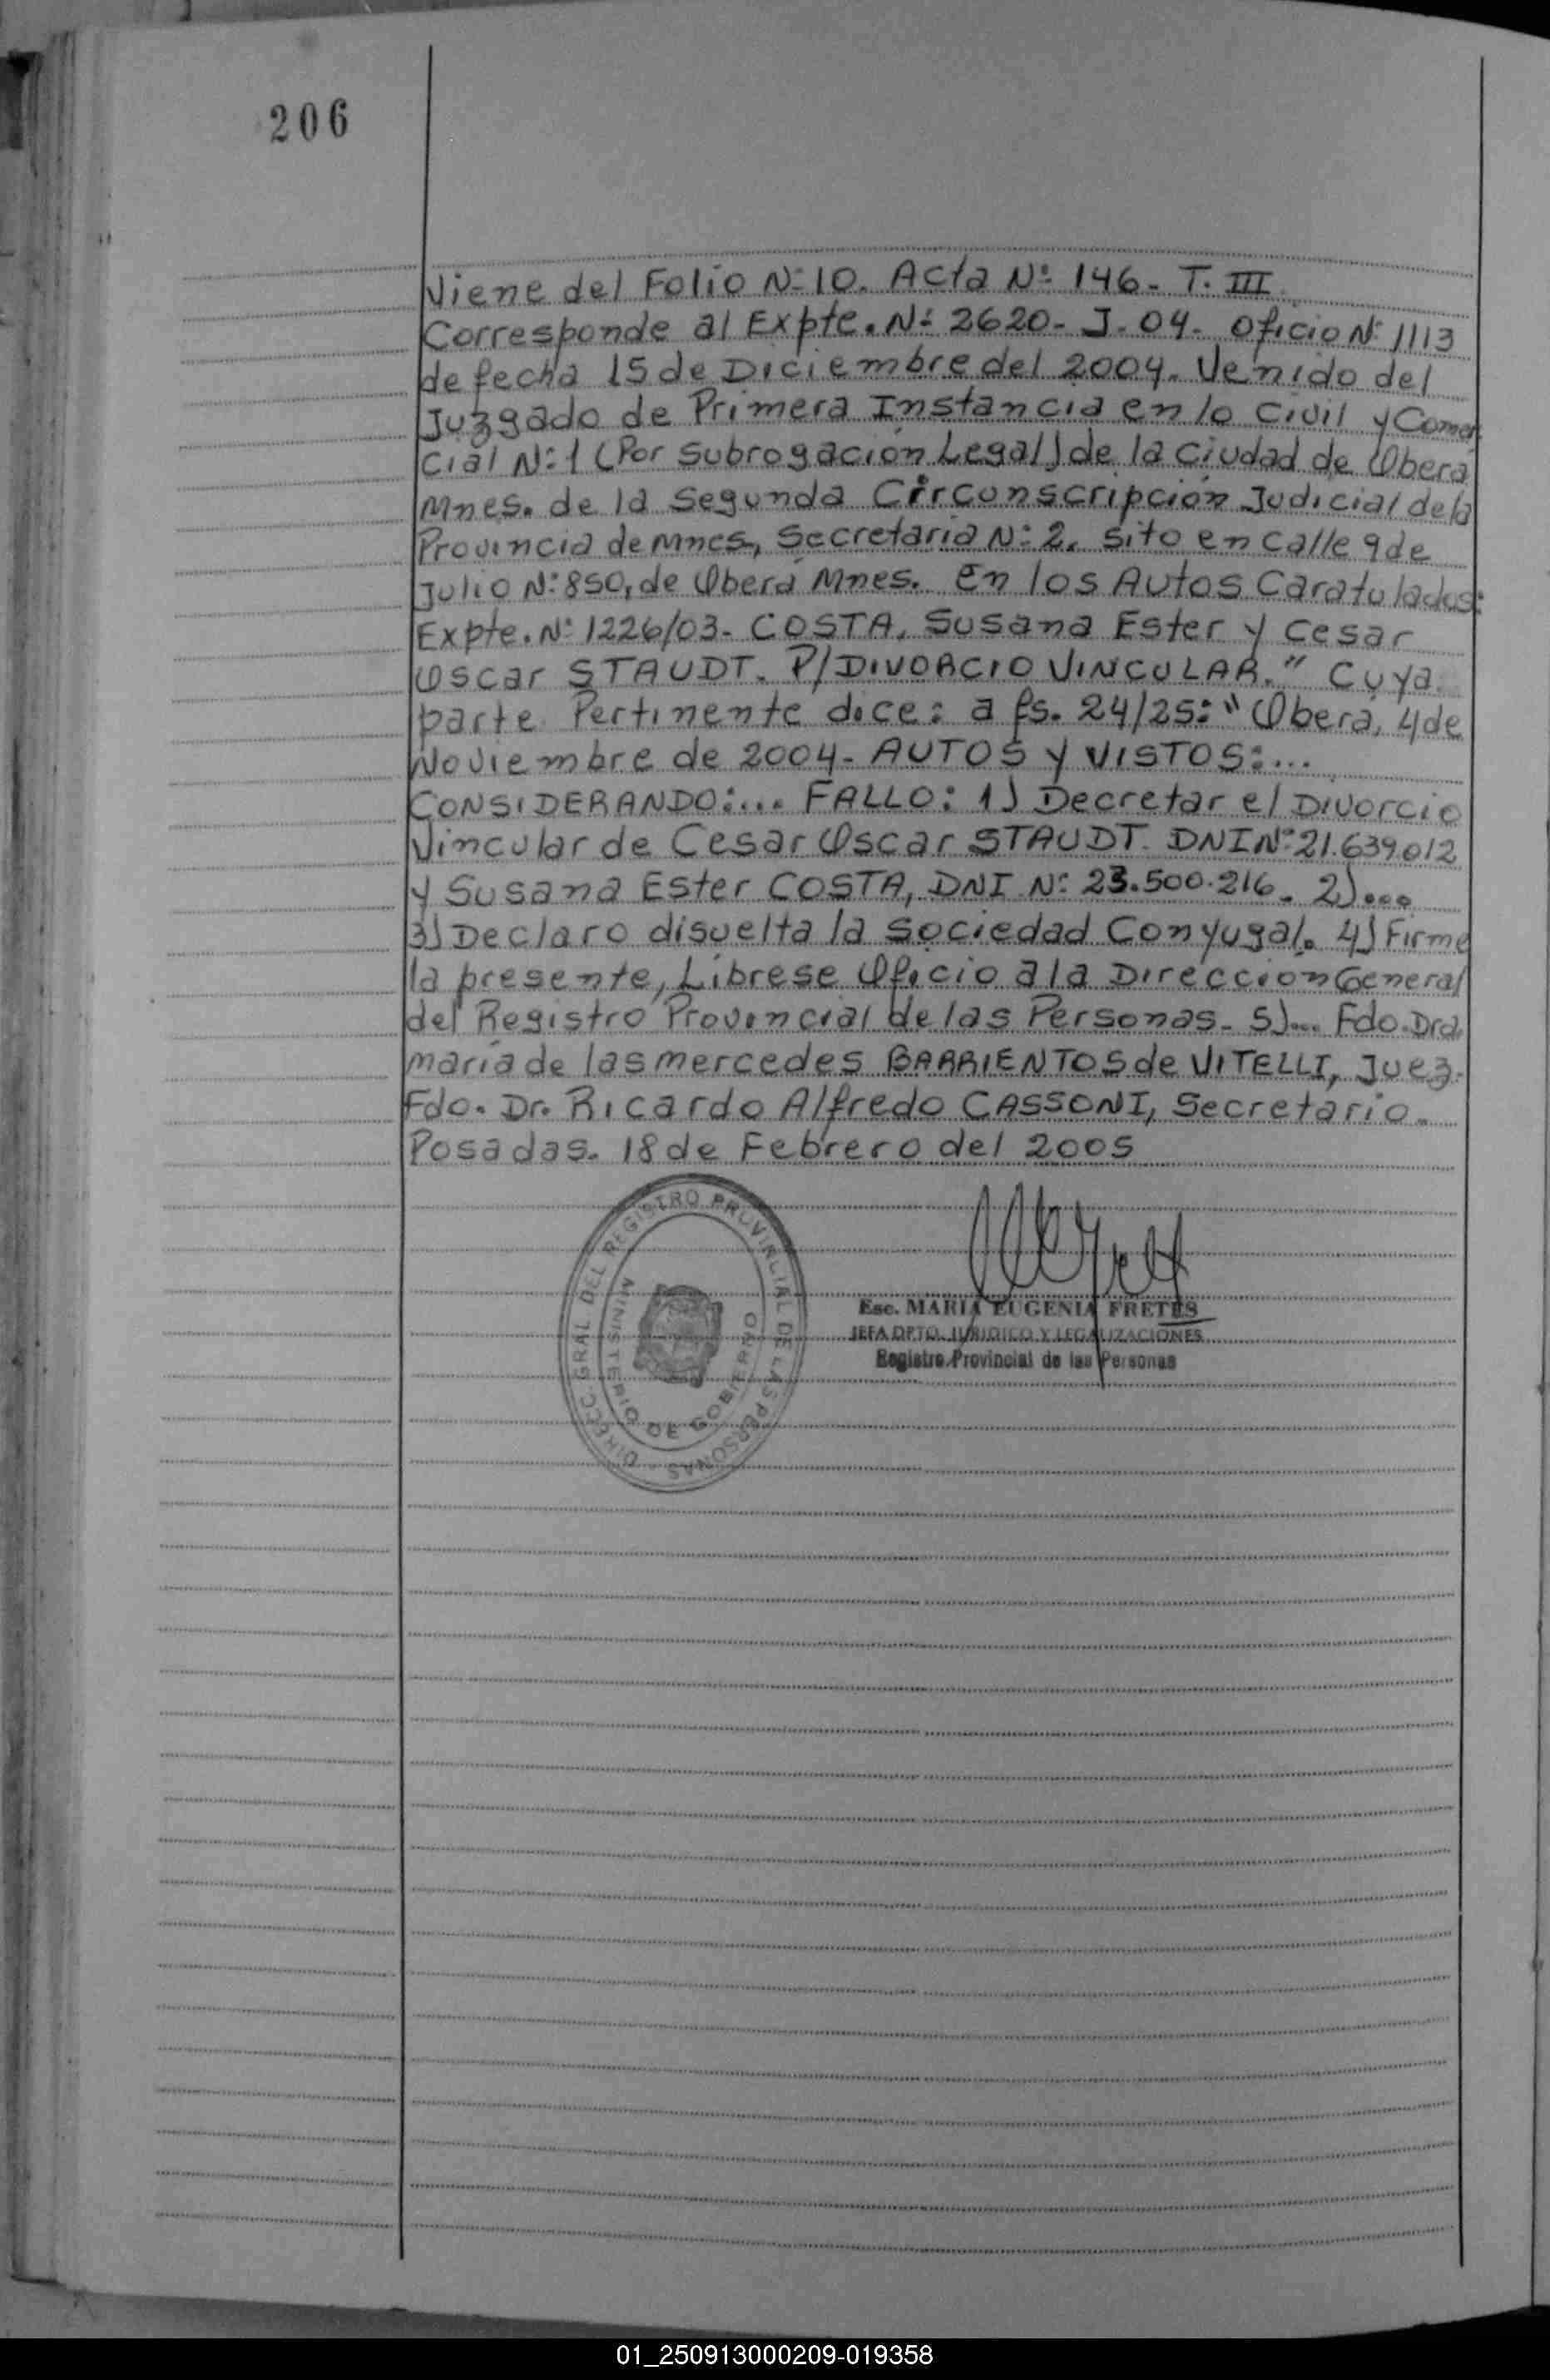 206
Viene del Folio Nº 10. Acta Nº 146 - T. III
Corresponde al Expte. Nº 2620 - J - 04 - Oficio Nº 1113
de fecha 15 de Diciembre del 2004. Venido del
Juzgado de Primera Instancia en lo Civil y Comer
cial Nº 1 (Por Subrogación Legal) de la Ciudad de Oberá
Mnes. de la Segunda Circonscripción Judicial de la
Provincia de Mnes, Secretaria Nº 2. sito en calle 9 de
Julio Nº 850, de Oberá Mnes. En los Autos Caratulados:
Expte. Nº 1226/03 - COSTA, Susana Ester y Cesar
Oscar STAUDT. P/DIVORCIO VINCULAR." Cuya
parte Pertinente dice: a fs. 24/25: "Oberá, 4 de
Noviembre de 2004 - AUTOS Y VISTOS:...
CONSIDERANDO:... FALLO: 1) Decretar el Divorcio
Vincular de Cesar Oscar STAUDT. DNI Nº 21.639.012
y Susana Ester COSTA, DNI Nº 23.500.216. 2)...
3) Declaro disuelta la Sociedad Conyugal. 4) Firme
la presente, Líbrese Oficio a la Direccion General
del Registro Provincial de las Personas. 5)... Fdo. Dra.
maría de las mercedes BARRIENTOS de VITELLI, Juez.
Fdo. Dr. Ricardo Alfredo CASSONI, Secretario.
Posadas. 18 de Febrero del 2005
DIRECC. GRAL DEL REGISTRO PROVINCIAL DE LAS PERSONAS
MINISTERIO DE GOBIERNO
Esc. MARIA EUGENIA FRETES
JEFA DPTO. JURIDICO Y LEGALIZACIONES
Registro Provincial de las Personas
01_250913000209-019358